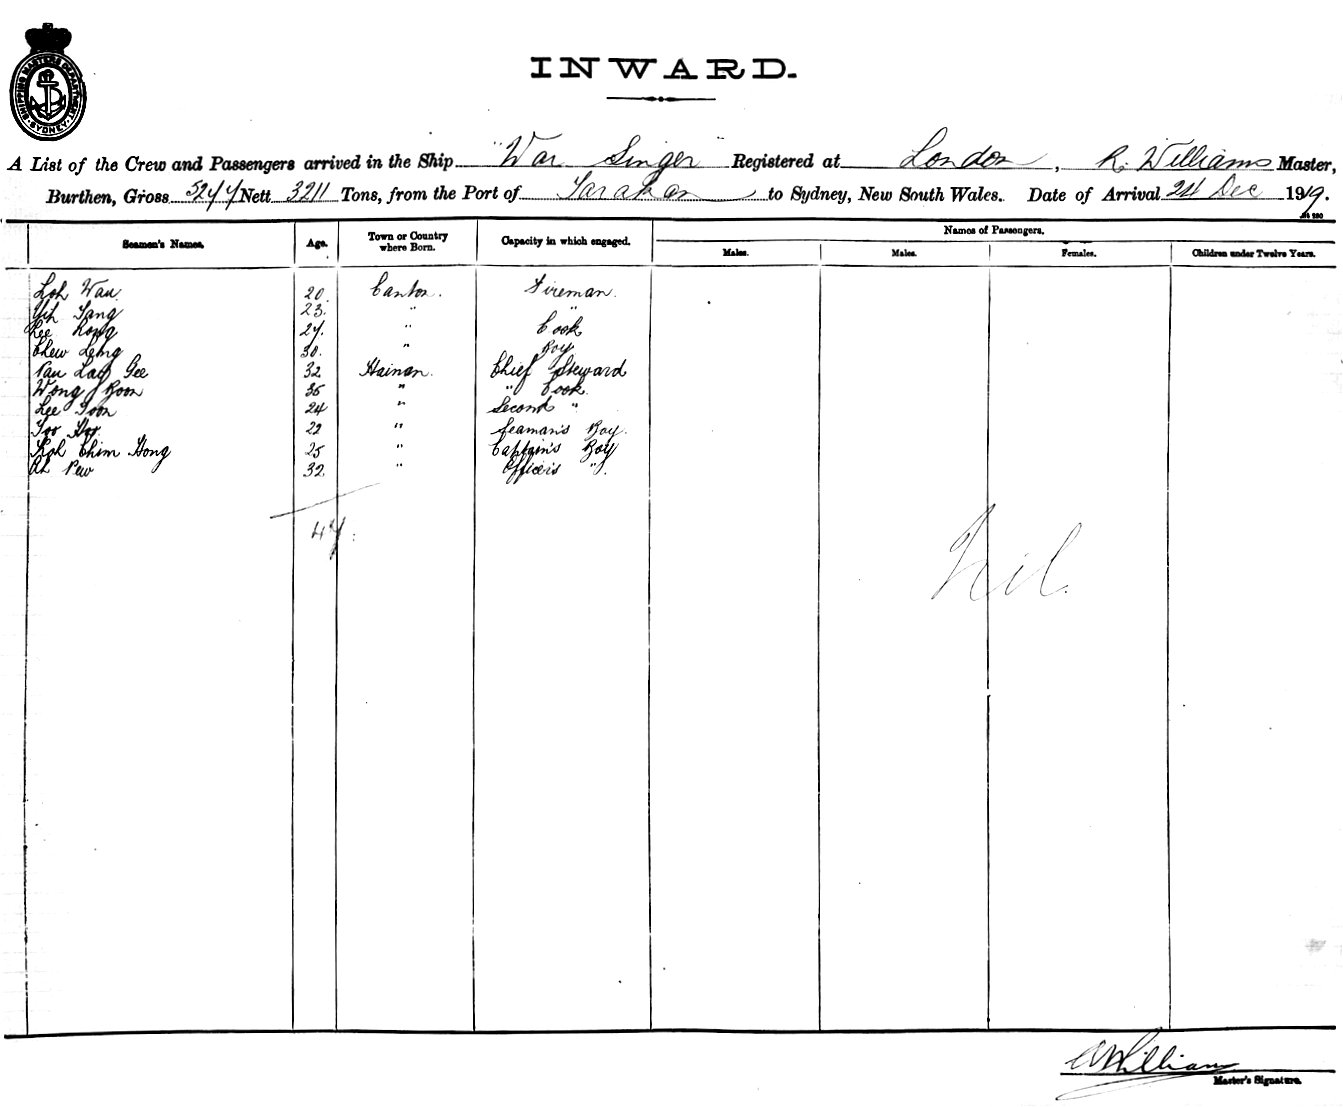 SHIPPING MASTERS DEPARTMENT SYDNEY
INWARD.
A List of the Crew and Passengers arrived in the Ship "War Singer" Registered at London, R. Williams Master,
Burthen, Gross 5244 Nett 3211 Tons, from the Port of Tarakan to Sydney, New South Wales. Date of Arrival 24 Dec 1919.
Seamen's Names. Age. Town or Country where Born. Capacity in which engaged. Names of Passengers.
Males. Males. Females. Children under Twelve Years.
Loh Wan 20 Canton. Fireman.
Yih Sang 23. " "
Lee Kong 27. " Cook
Chew Leng 30. " Boy
Pau Lap Gee 32 Hainan. Chief Steward
Wong Boon 35 " " Cook.
Lee Toon 24 " Second "
Too Hoo 22 " Seaman's Boy.
Koh Chim Hong 25 " Captain's Boy
Ah Pew 32. " Officer's ".
47.
Nil.
R Williams
Master's Signature.